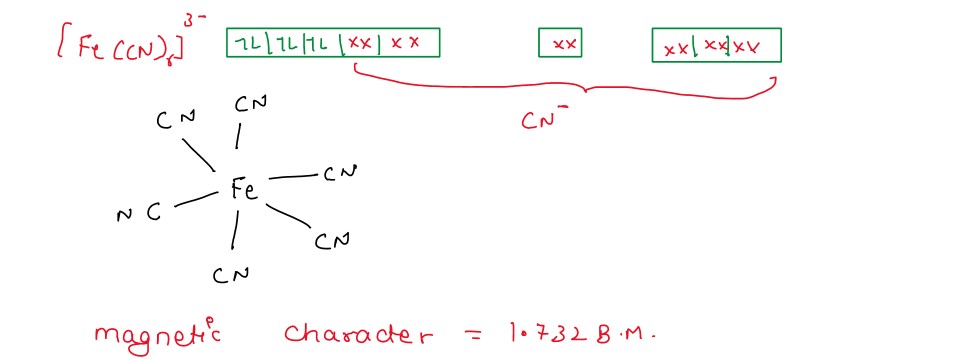 [Fe(CN)₆]³⁻ 1L|1L|1L|xx|xx xx xx|xx|xx
CN⁻
CN CN
Fe CN
NC
CN
CN
magnetic character = 1.732 B.M.